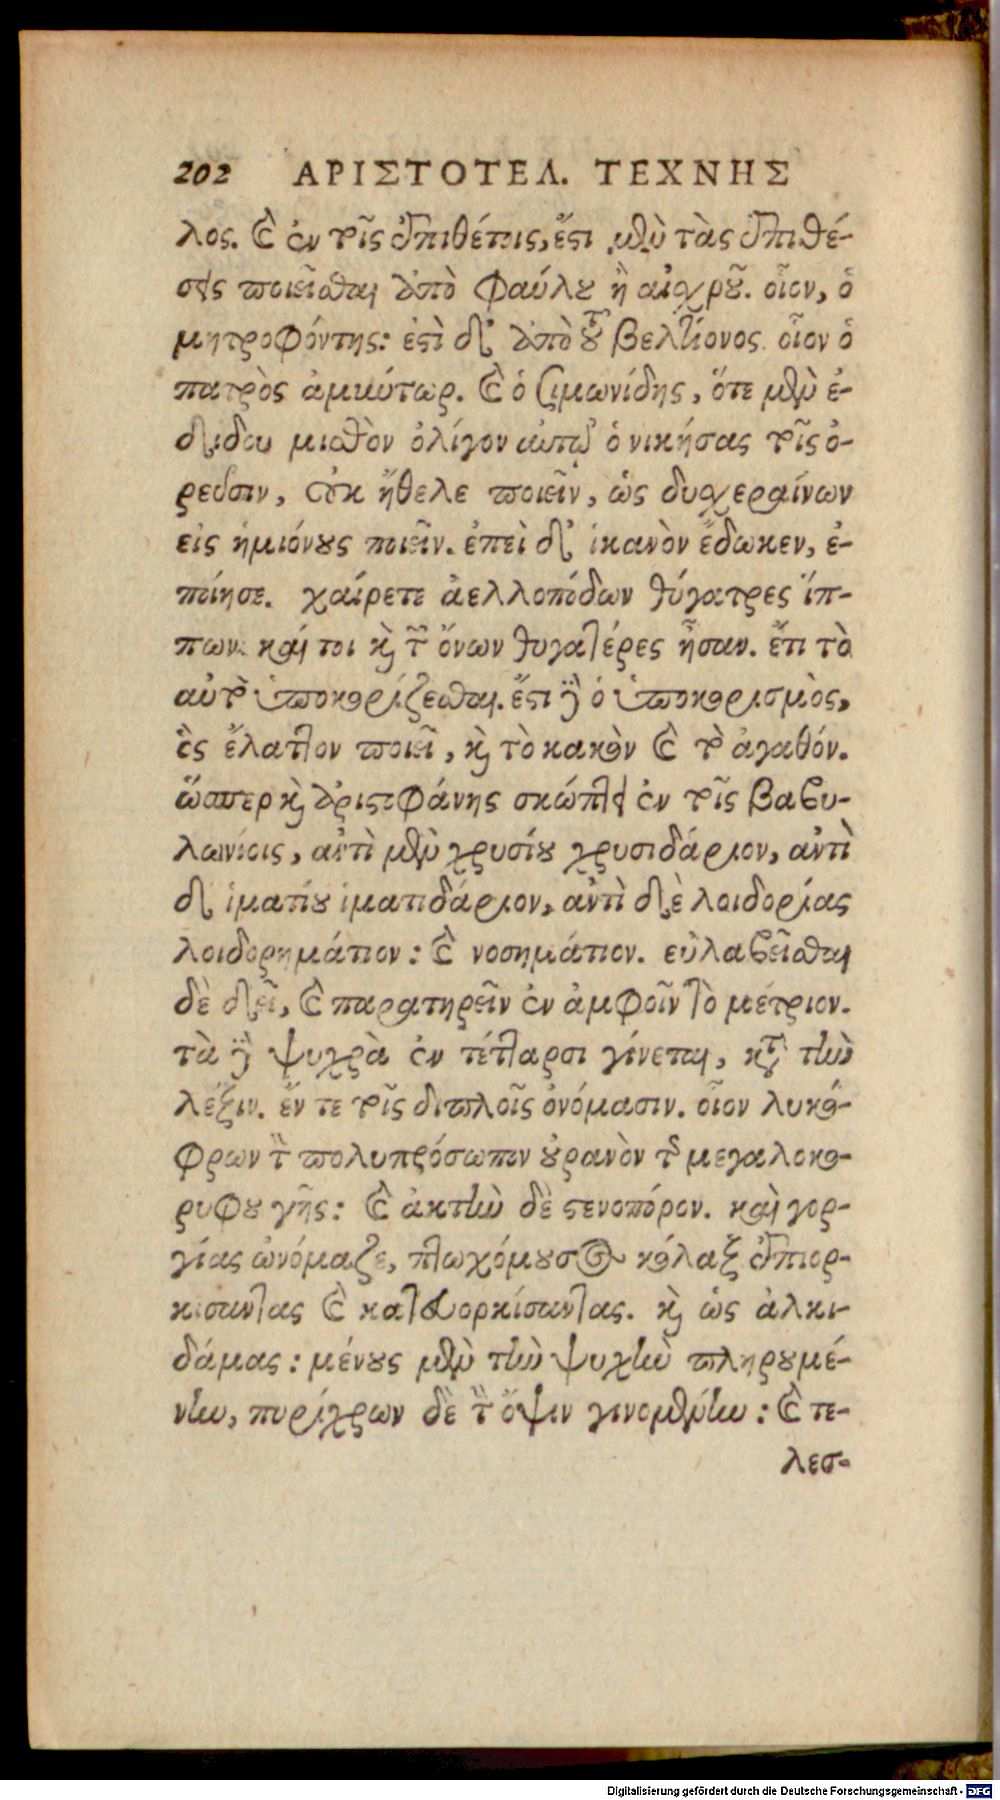 202 ΑΡΙΣΤΟΤΕΛ. ΤΕΧΝΗΣ
λος. καὶ ἐν τοῖς ἐπιθέτοις, ἔστι μὲν τὰς ἐπιθέ-
σεις ποιεῖσθαι ἀπὸ φαύλου ἢ αἰσχροῦ. οἷον, ὁ
μητροφόντης: ἐστὶ δ᾽ ἀπὸ τοῦ βελτίονος. οἷον ὁ
πατρὸς ἀμιύτωρ. καὶ ὁ Σιμωνίδης, ὅτε μὲν ἐ-
δίδου μισθὸν ὀλίγον αὐτῷ ὁ νικήσας τοῖς ὀ-
ρεῦσιν, οὐκ ἤθελε ποιεῖν, ὡς δυσχεραίνων
εἰς ἡμιόνους ποιεῖν. ἐπεὶ δ᾽ ἱκανὸν ἔδωκεν, ἐ-
ποίησε. χαίρετε ἀελλοπόδων θύγατρες ἵπ-
πων. καί τοι καὶ τῶν ὄνων θυγατέρες ἦσαν. ἔτι τὸ
αὐτὸ ὑποκορίζεσθαι. ἔστι γὰρ ὁ ὑποκορισμὸς,
ὃς ἔλαττον ποιεῖ, καὶ τὸ κακὸν καὶ τὸ ἀγαθόν.
ὥσπερ καὶ ἀριστοφάνης σκώπτει ἐν τοῖς βαβυ-
λωνίοις, ἀντὶ μὲν χρυσίου χρυσιδάριον, ἀντὶ
δ᾽ ἱματίου ἱματιδάριον, ἀντὶ δὲ λοιδορίας
λοιδορημάτιον: καὶ νοσημάτιον. εὐλαβεῖσθαι
δὲ δεῖ, καὶ παρατηρεῖν ἐν ἀμφοῖν τὸ μέτριον.
τὰ γὰρ ψυχρὰ ἐν τέτταρσι γίνεται, κατὰ τὴν
λέξιν. ἔν τε τοῖς διπλοῖς ὀνόμασιν. οἷον λυκό-
φρων τὸν πολυπρόσωπον οὐρανὸν τῆς μεγαλοκο-
ρύφου γῆς: καὶ ἀκτὴν δὲ στενοπόρον. καὶ γορ-
γίας ὠνόμαζε, πτωχόμουσος κόλαξ ἐπιορ-
κίσαντας καὶ κατευορκίσαντας. καὶ ὡς ἀλκι-
δάμας: μένους μὲν τὴν ψυχὴν πληρουμέ-
νην, πυρίχρων δὲ τὴν ὄψιν γινομένην: καὶ τε-
λεσ-
Digitalisierung gefördert durch die Deutsche Forschungsgemeinschaft - DFG